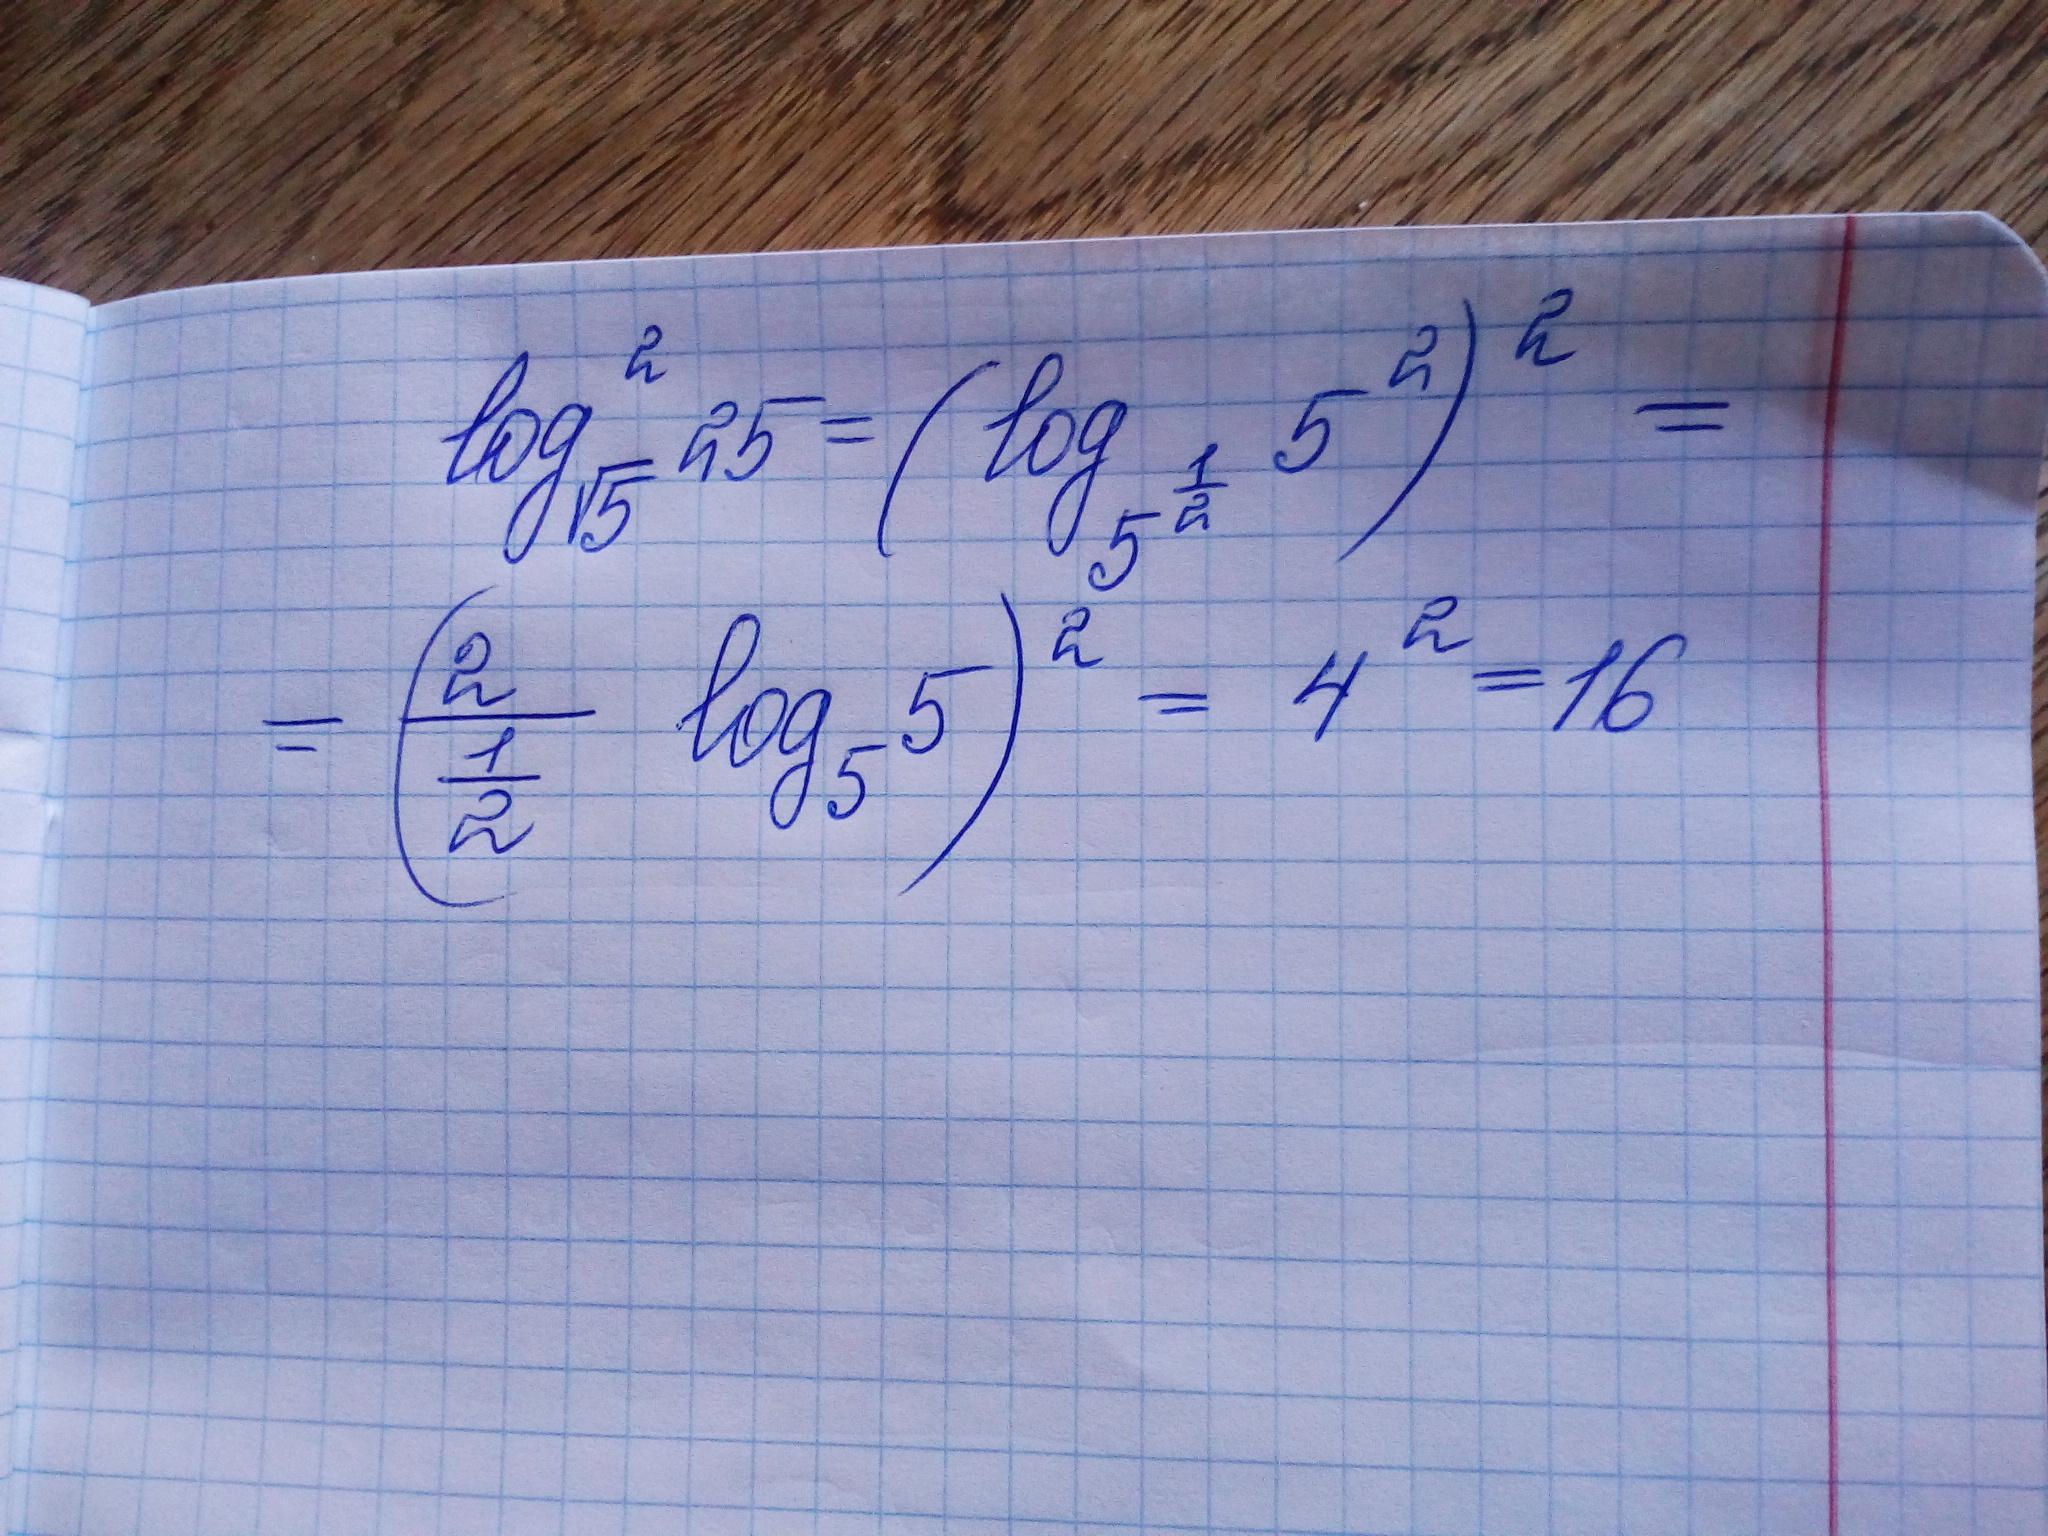 log²_√5 25 = (log_5^(1/2) 5²)² =
= (2/(1/2) log_5 5)² = 4² = 16